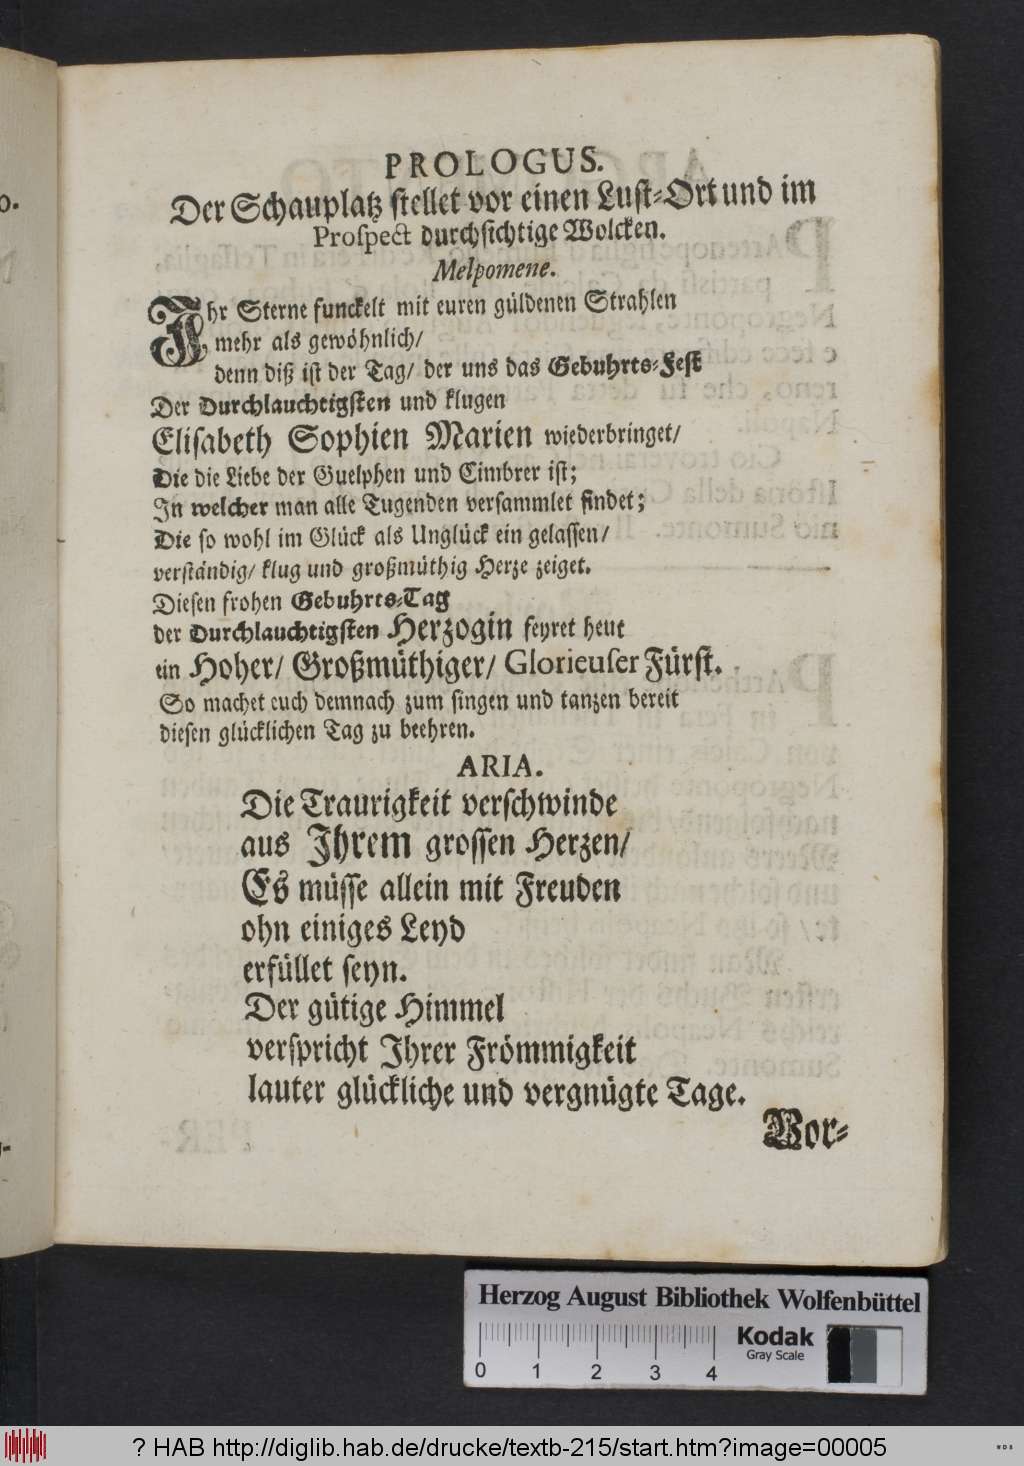 PROLOGUS.
Der Schauplatz stellet vor einen Lust-Ort und im
Prospect durchsichtige Wolcken.
Melpomene.
Ihr Sterne funckelt mit euren güldenen Strahlen
mehr als gewöhnlich/
denn diß ist der Tag/ der uns das Gebuhrts-Fest
Der Durchlauchtigsten und klugen
Elisabeth Sophien Marien wiederbringet/
Die die Liebe der Guelphen und Cimbrer ist;
In welcher man alle Tugenden versammlet findet;
Die so wohl im Glück als Unglück ein gelassen/
verständig/ klug und großmüthig Herze zeiget.
Diesen frohen Gebuhrts-Tag
der Durchlauchtigsten Herzogin feyret heut
ein Hoher/ Großmüthiger/ Glorieuser Fürst.
So machet euch demnach zum singen und tanzen bereit
diesen glücklichen Tag zu beehren.
ARIA.
Die Traurigkeit verschwinde
aus Ihrem grossen Herzen/
Es müsse allein mit Freuden
ohn einiges Leyd
erfüllet seyn.
Der gütige Himmel
verspricht Ihrer Frömmigkeit
lauter glückliche und vergnügte Tage.
Vor-
Herzog August Bibliothek Wolfenbüttel
Kodak
Gray Scale
0 1 2 3 4
? HAB http://diglib.hab.de/drucke/textb-215/start.htm?image=00005